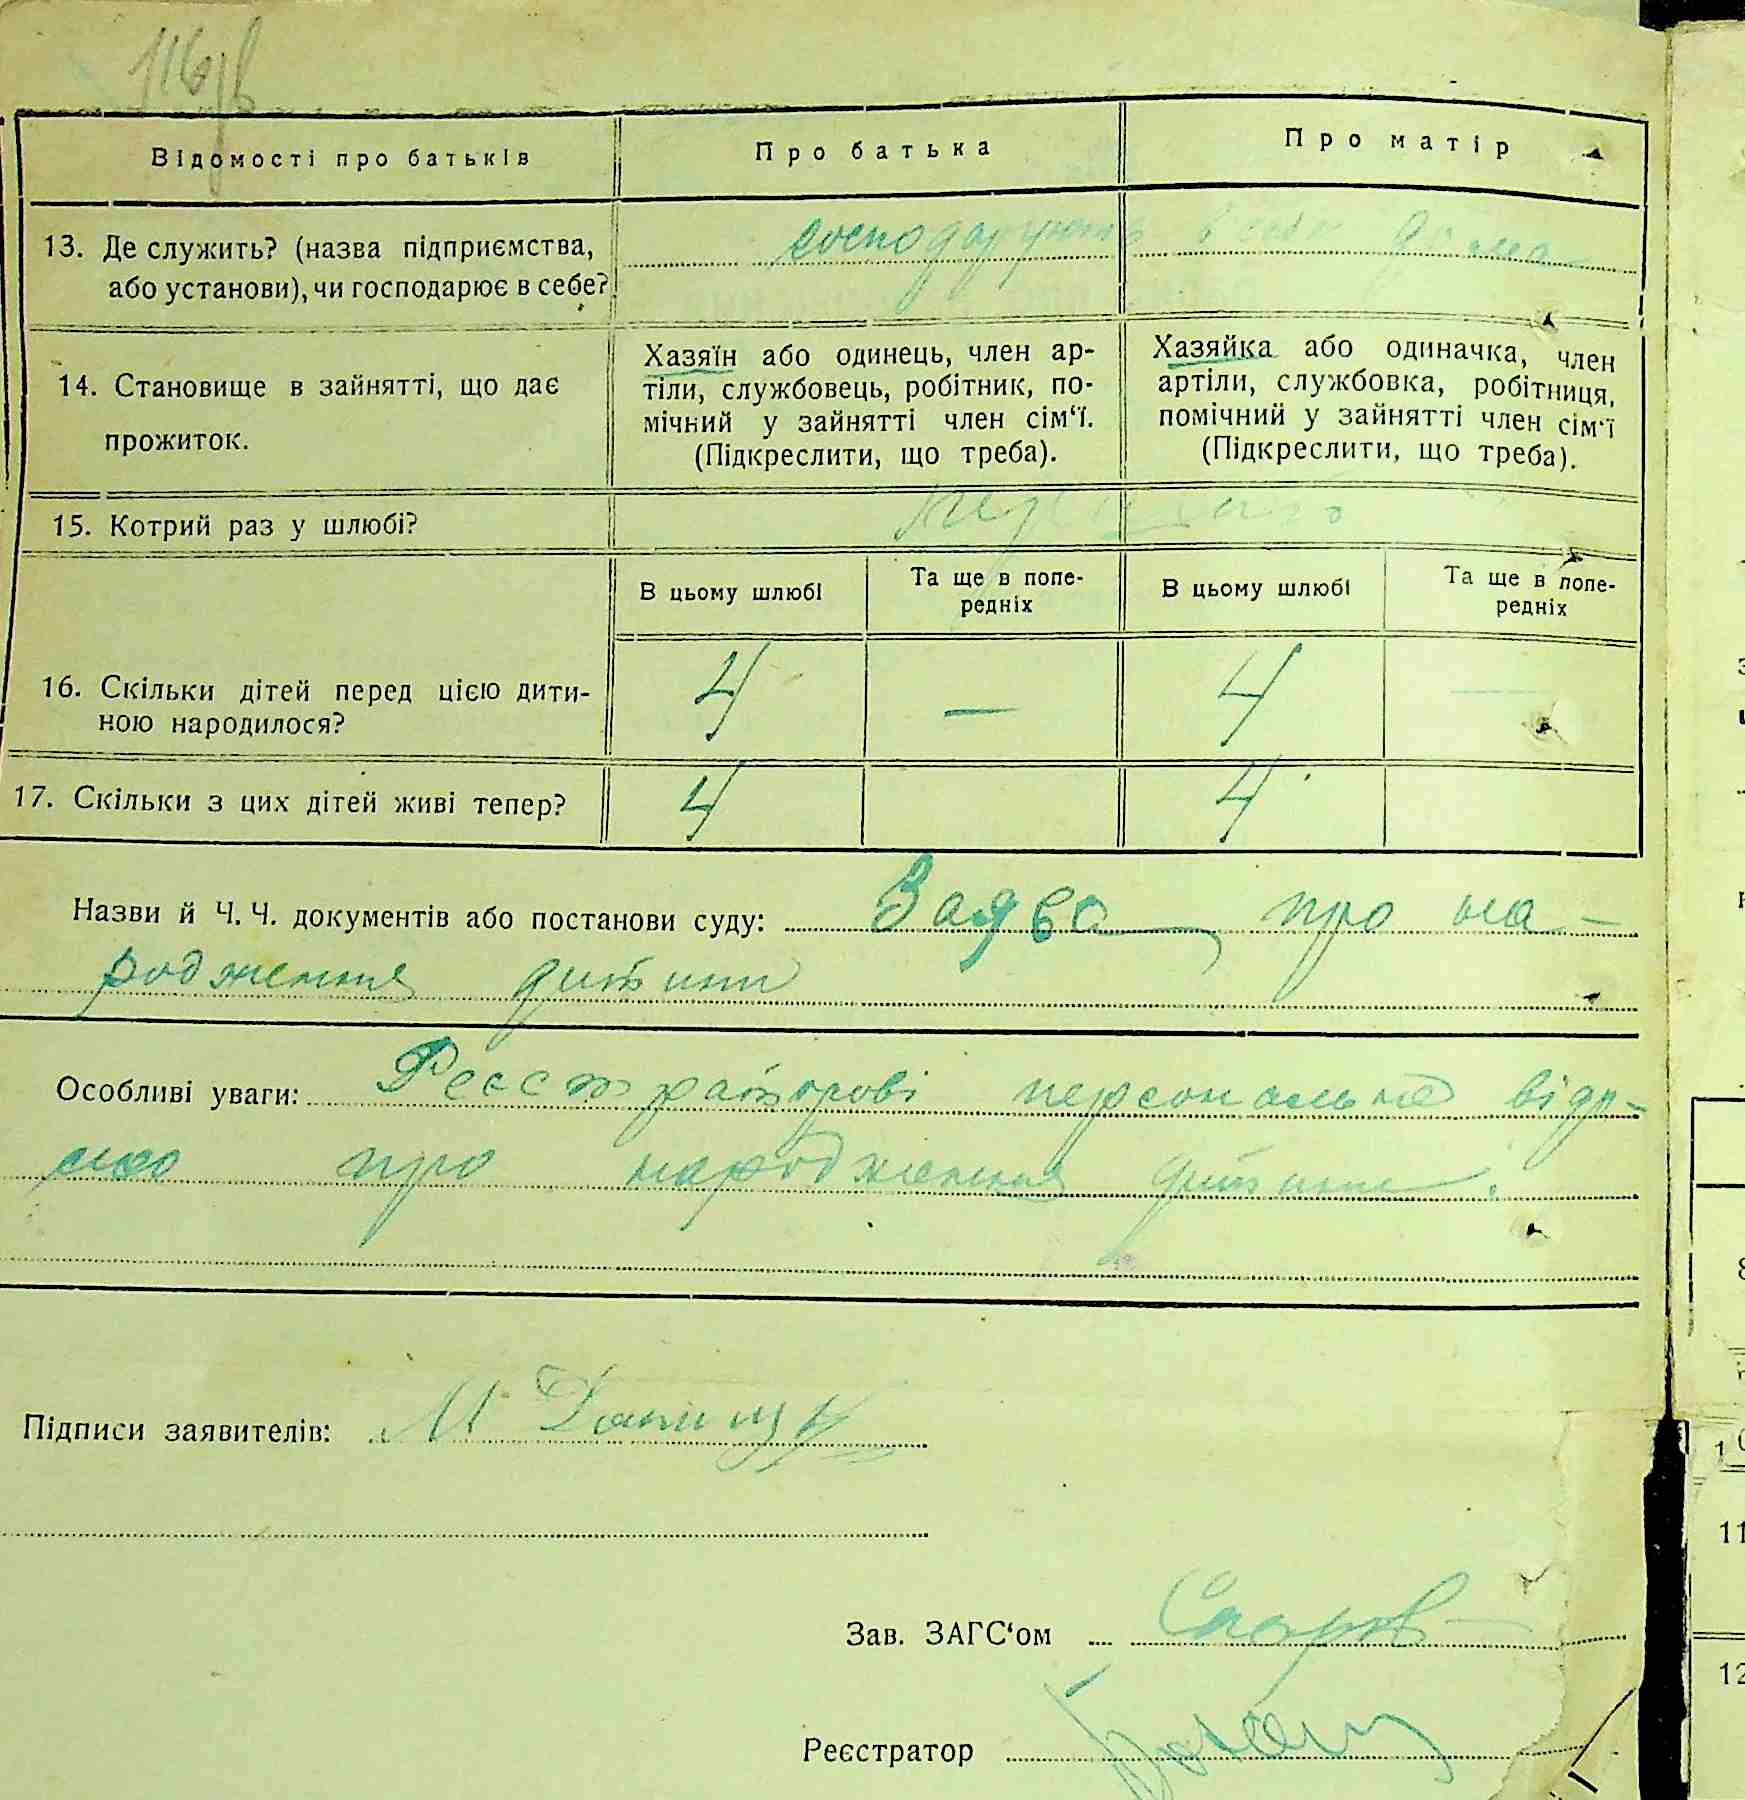 116зв
Відомості про батьків
Про батька
Про матір
13. Де служить? (назва підприємства,
або установи), чи господарює в себе?
господарують в себе дома
14. Становище в зайнятті, що дає
прожиток.
Хазяїн або одинець, член ар-
тіли, службовець, робітник, по-
мічний у зайнятті член сім‘ї.
(Підкреслити, що треба).
Хазяйка або одиначка, член
артіли, службовка, робітниця,
помічний у зайнятті член сім‘ї
(Підкреслити, що треба).
15. Котрий раз у шлюбі?
В цьому шлюбі
Та ще в попе-
редніх
В цьому шлюбі
Та ще в попе-
редніх
16. Скільки дітей перед цією дити-
ною народилося?
4 — 4 —
17. Скільки з цих дітей живі тепер?
4 4
Назви й Ч. Ч. документів або постанови суду: Заява про на-
родження дитини
Особливі уваги: Реєстраторові персонально відо-
мо про народження дитини.
Підписи заявителів: М
Зав. ЗАГС‘ом
Реєстратор
8
1
11
12